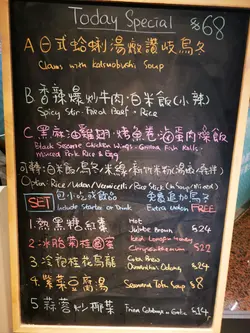 Today Special $68
A 日式蛤蜊湯燉讚岐烏冬
Clams with Katsuobushi Soup
B 香辣爆炒牛肉·白米飯(小辣)
Spicy Stir-Fried Beef + Rice
C 黑麻油雞翅·烤魚卷·蛋肉燥飯
Black Sesame Chicken Wings·Grilled Fish Rolls
Minced Pork Rice & Egg
可轉:白米飯/烏冬/米線/新竹米粉(湯或伴汁)
Option: Rice/Udon/Vermicelli/Rice Stick (In Soup/Mixed)
SET 包1小吃或飲品 免費追加烏冬
Include Starter or Drink Extra Udon FREE
1. 熱黑糖紅棗 Hot Jujube Brown $24
2. 冰脂菊桂圓茶 $22
3. 冷泡桂花烏龍 Cold Brew Osmanthus Oolong $24
4. 紫菜豆腐湯 Seaweed Tofu Soup $8
5. 蒜蓉炒椰菜 Fried Cabbage w Garlic $14